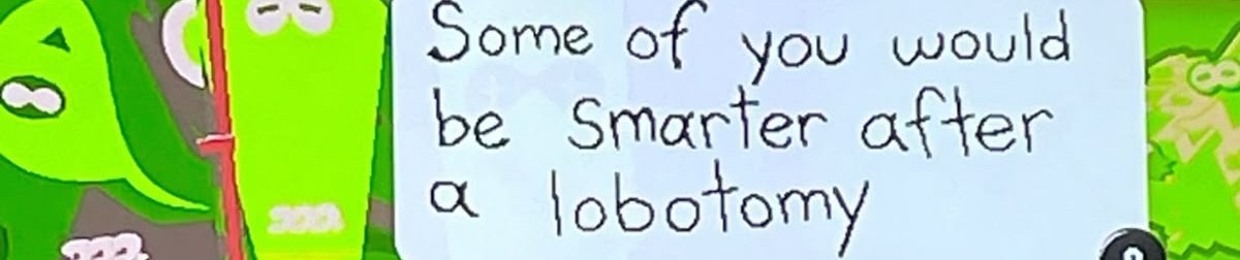 Some of you would
be smarter after
a lobotomy